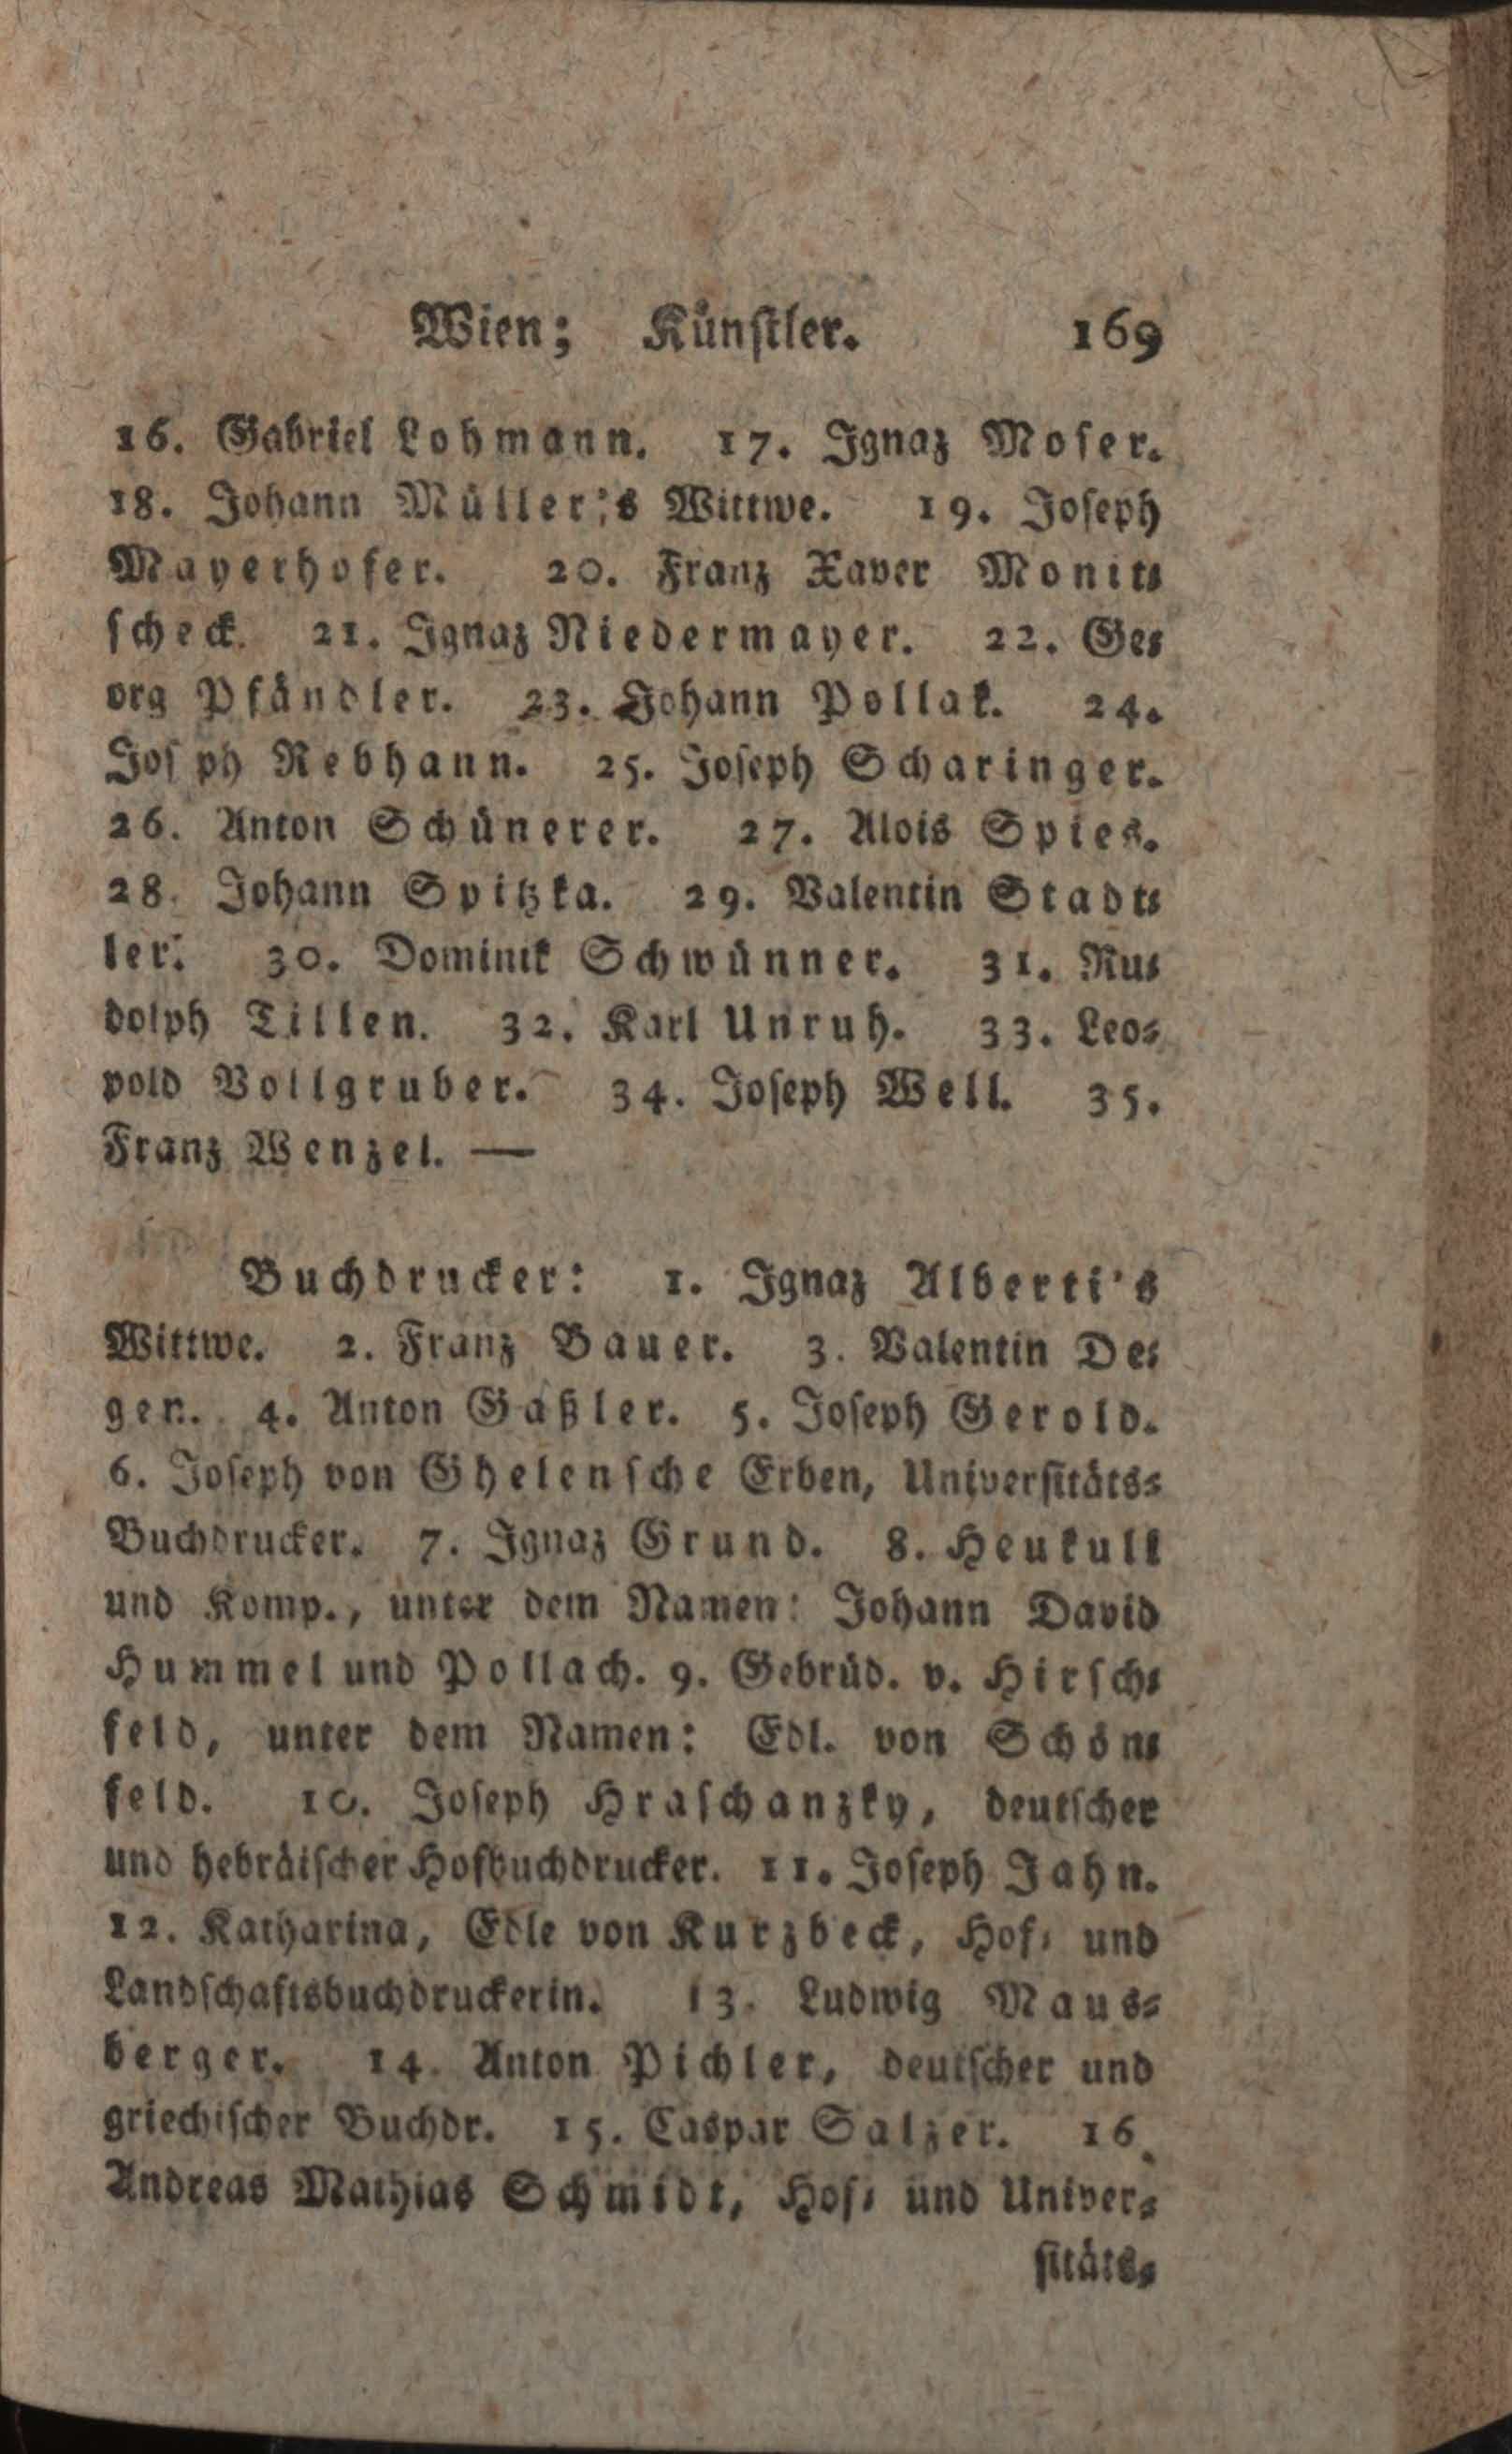 Wien; Künstler. 169
16. Gabriel Lohmann. 17. Ignaz Moser.
18. Johann Müller's Wittwe. 19. Joseph
Mayerhofer. 20. Franz Xaver Monit-
scheck. 21. Ignaz Niedermayer. 22. Ge-
org Pfändler. 23. Johann Pollak. 24.
Jos ph Rebhann. 25. Joseph Scharinger.
26. Anton Schünerer. 27. Alois Spies.
28. Johann Spitzka. 29. Valentin Stadt-
ler. 30. Dominik Schwünner. 31. Ru-
dolph Tillen. 32. Karl Unruh. 33. Leo-
pold Vollgruber. 34. Joseph Well. 35.
Franz Wenzel. —
Buchdrucker: 1. Ignaz Alberti's
Wittwe. 2. Franz Bauer. 3. Valentin De-
gen. 4. Anton Gaßler. 5. Joseph Gerold.
6. Joseph von Ghelensche Erben, Universitäts-
Buchdrucker. 7. Ignaz Grund. 8. Heukult
und Komp., unter dem Namen: Johann David
Hummel und Pollach. 9. Gebrüd. v. Hirsch-
feld, unter dem Namen: Edl. von Schön-
feld. 10. Joseph Hraschanzky, deutscher
und hebräischer Hofbuchdrucker. 11. Joseph Jahn.
12. Katharina, Edle von Kurzbeck, Hof- und
Landschaftsbuchdruckerin. 13. Ludwig Maus-
berger. 14. Anton Pichler, deutscher und
griechischer Buchdr. 15. Caspar Salzer. 16.
Andreas Mathias Schmidt, Hof- und Univer-
sitäts-